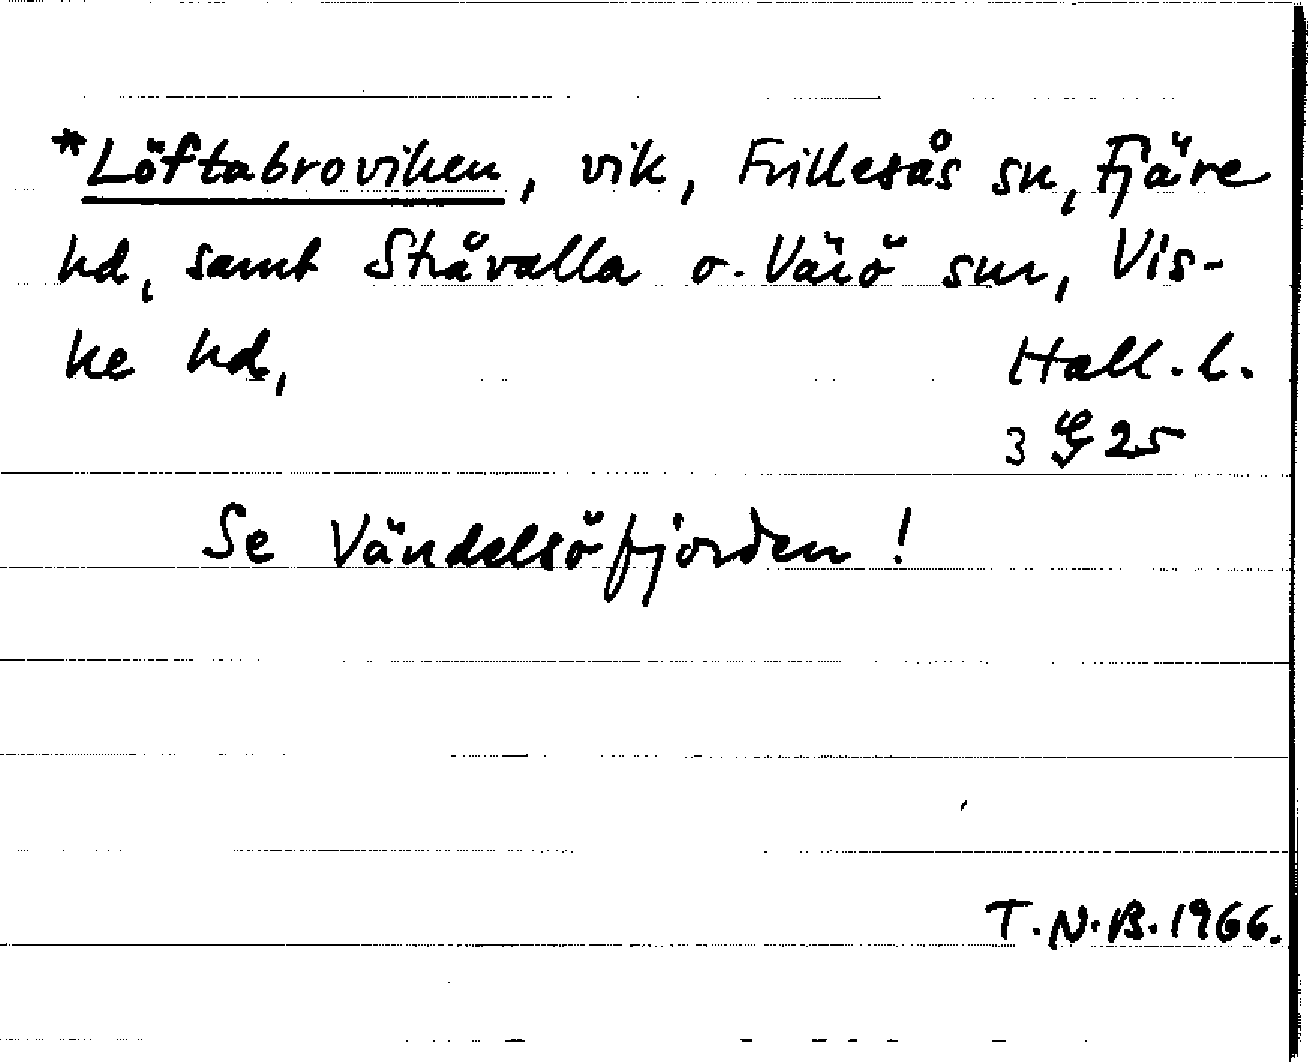 *Löftabroviken, vik, Frillesås sn, Fjäre
hd, samt Stråvalla o. Värö snr, Vis-
ke hd,
Hall. l.
3 25
Se Vändelsöfjorden!
T.N.B. 1966.